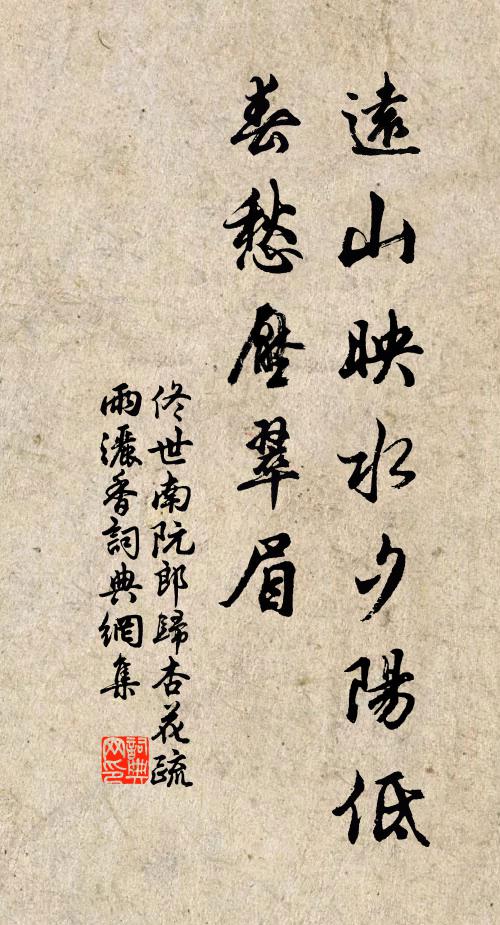 遠山映水夕陽低
春愁壓翠眉
佟世南阮郎歸杏花疏
雨灑香詞典網集
詞典網印